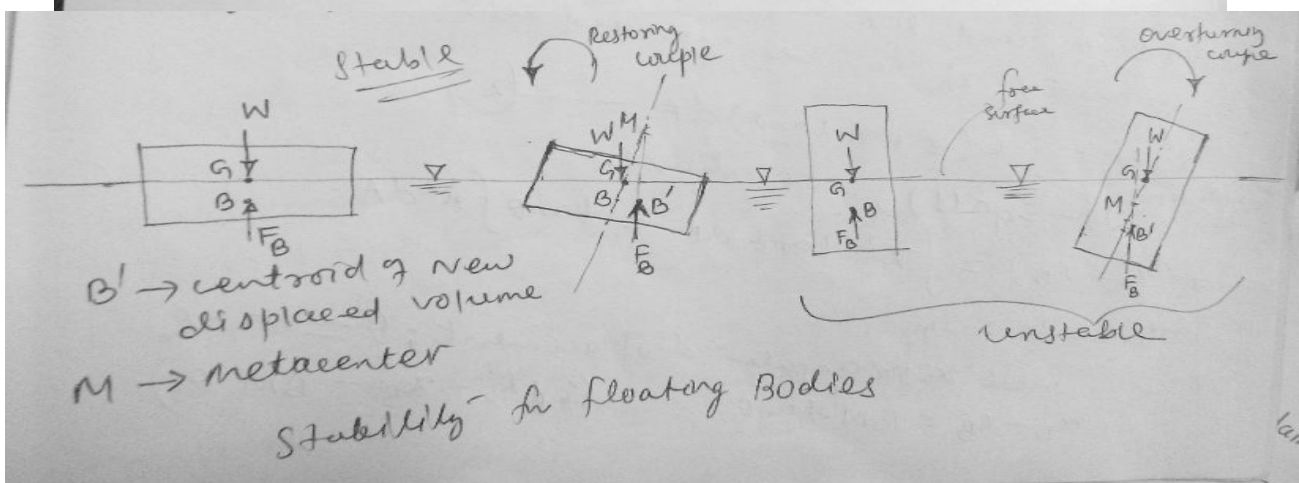 Stable
Restoring
couple
overturning
couple
free
surface
W
G
B
F_B
W M
G
B B'
F_B
W
G
B
F_B
W
G
M
B'
F_B
B' → centroid of New
displaced volume
M → metacenter
unstable
Stability for floating Bodies